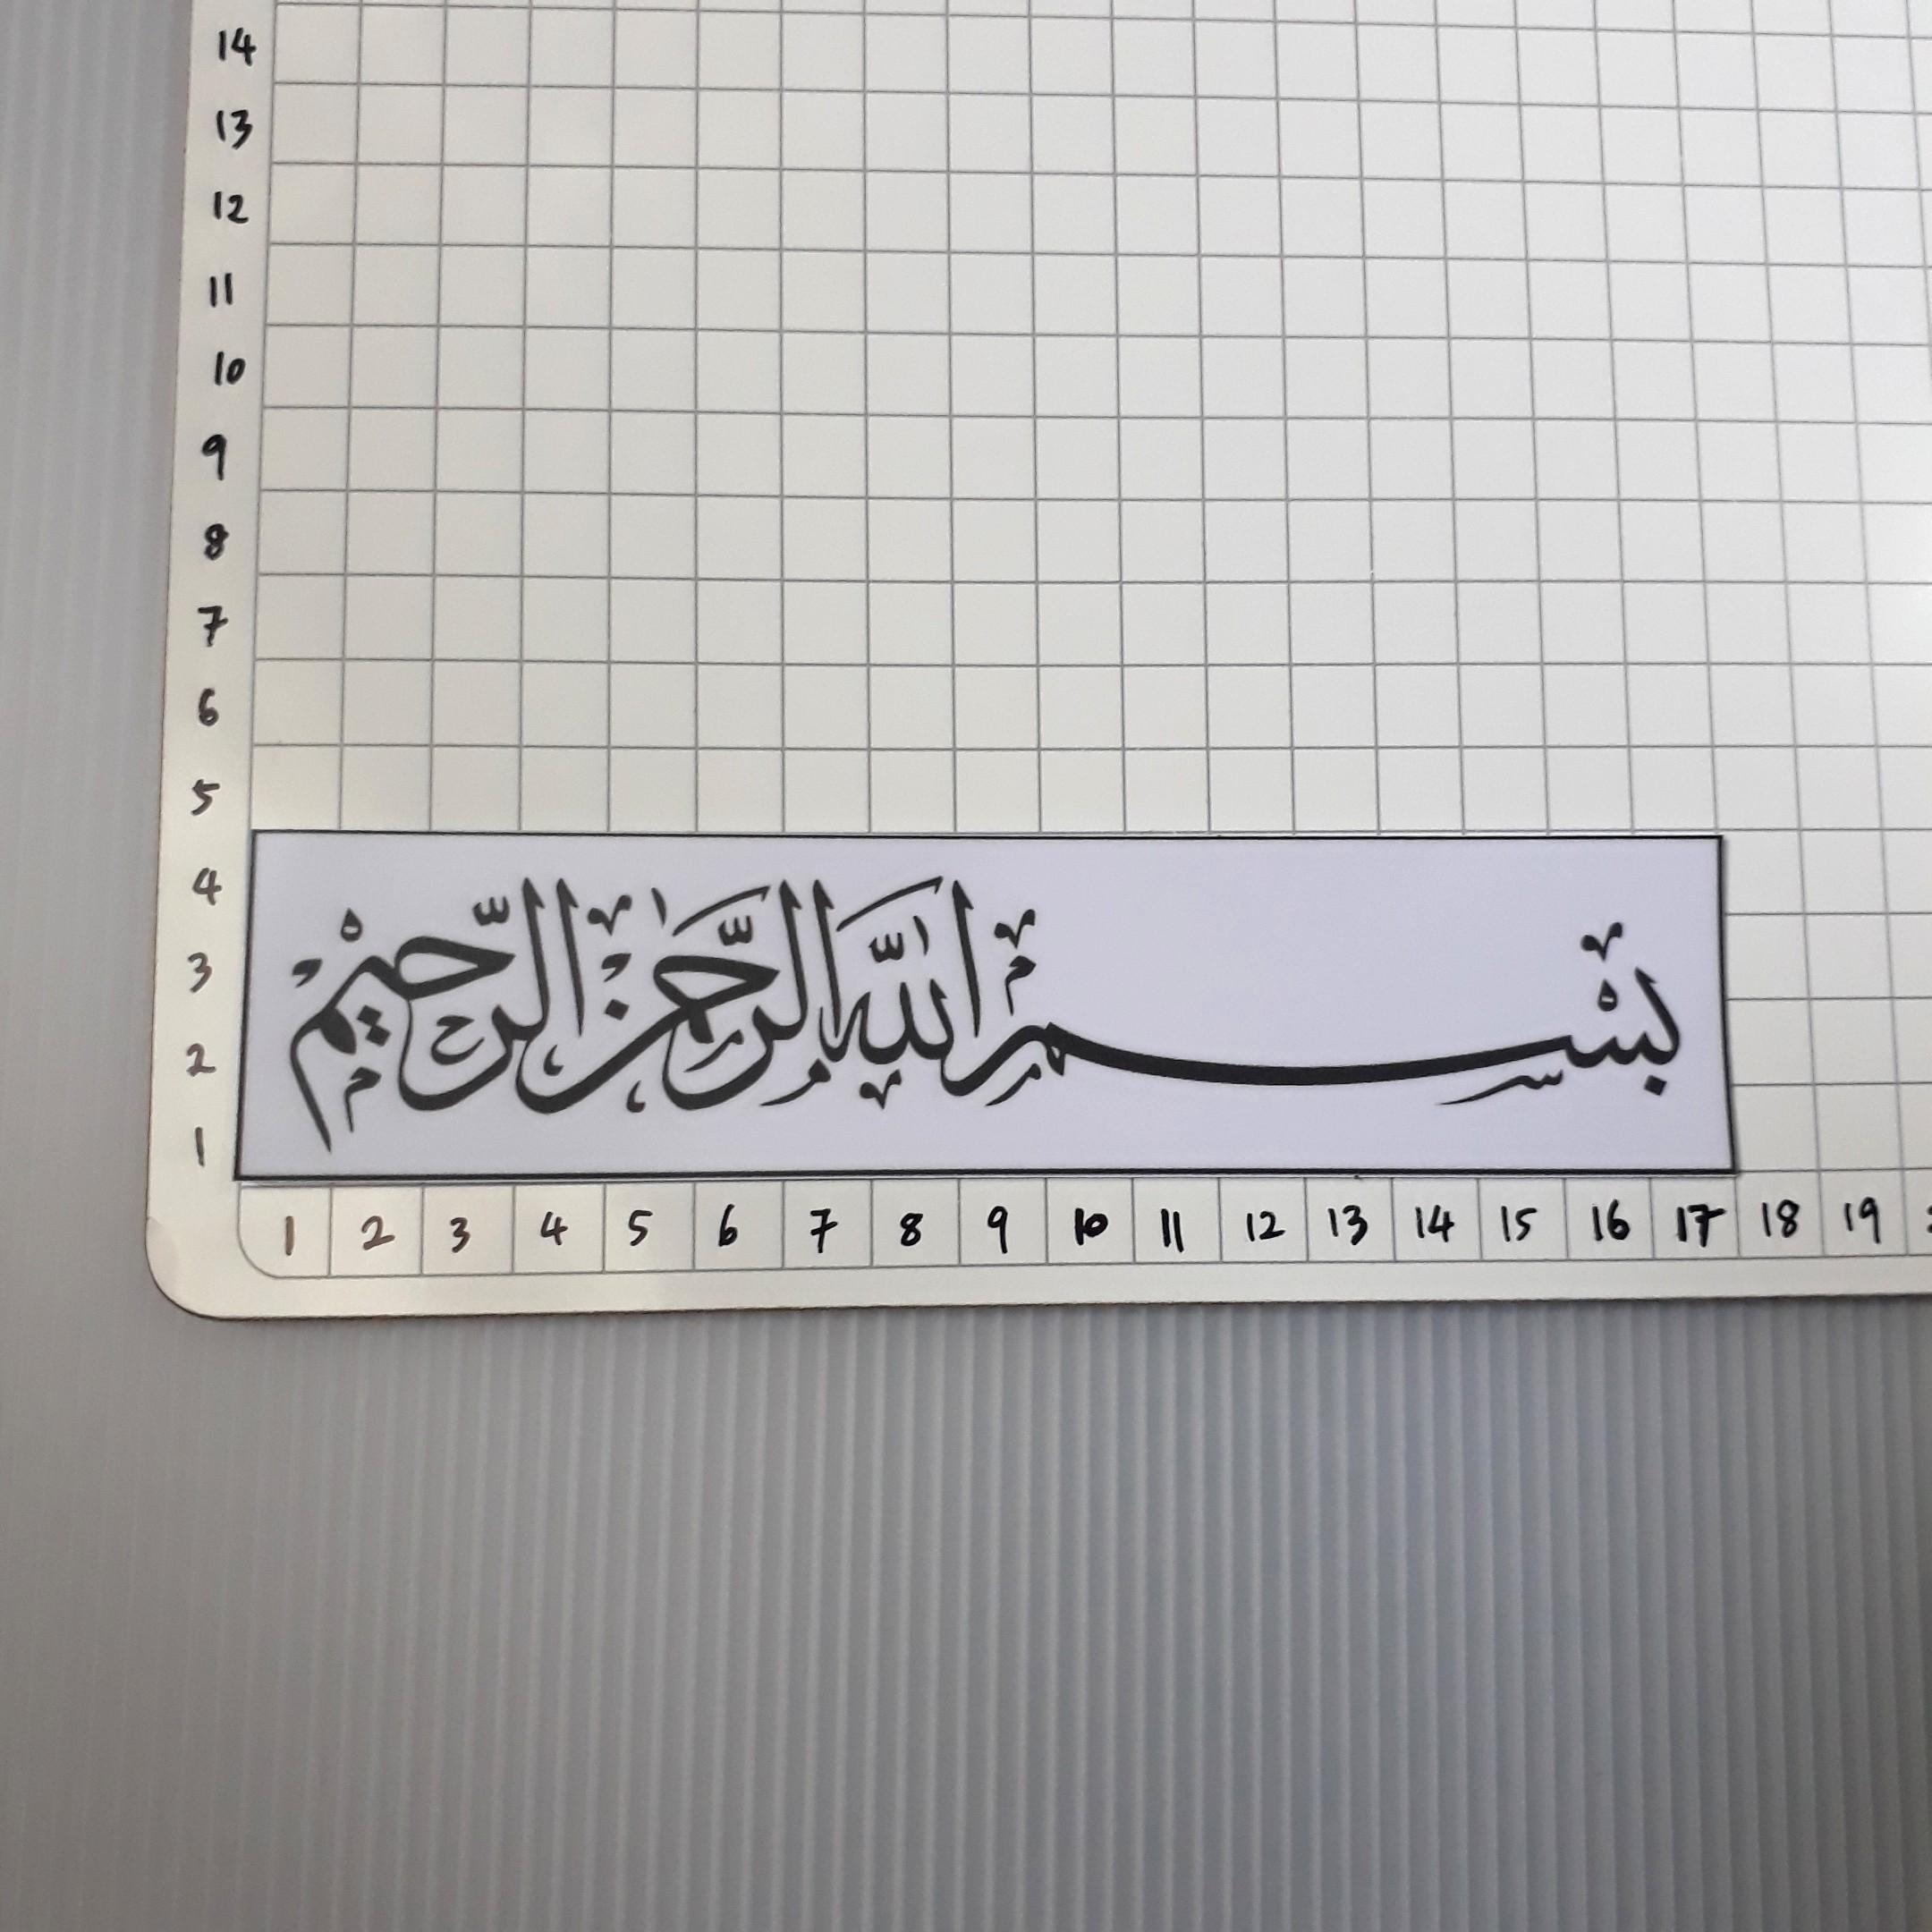 14
13
12
11
10
9
8
7
6
5
4
3
2
1
بِسْمِ اللَّهِ الرَّحْمَٰنِ الرَّحِيمِ
1 2 3 4 5 6 7 8 9 10 11 12 13 14 15 16 17 18 19